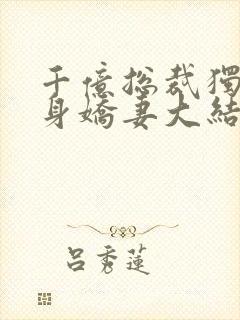 千億総裁獨
身嬌妻大結
呂秀蓮